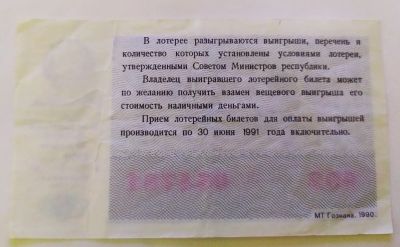 В лотерее разыгрываются выигрыши, перечень и
количество которых установлены условиями лотереи,
утвержденными Советом Министров республики.
Владелец выигравшего лотерейного билета может
по желанию получить взамен вещевого выигрыша его
стоимость наличными деньгами.
Прием лотерейных билетов для оплаты выигрышей
производится по 30 июня 1991 года включительно.
МТ Гознака. 1990.